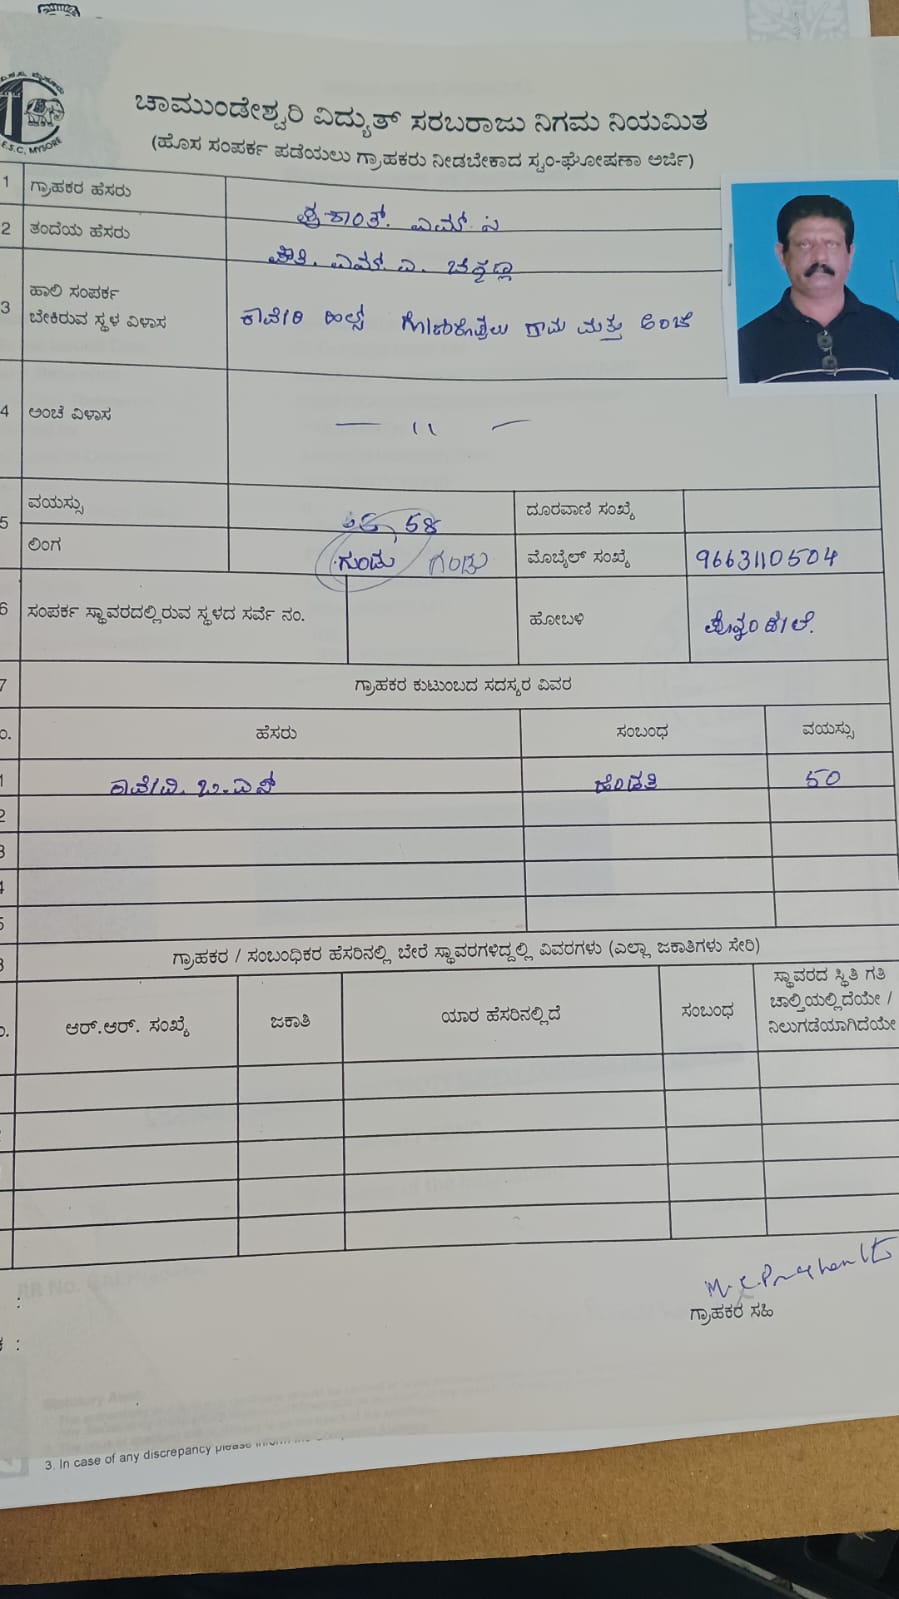 E.S.C, MYSORE
ಚಾಮುಂಡೇಶ್ವರಿ ವಿದ್ಯುತ್ ಸರಬರಾಜು ನಿಗಮ ನಿಯಮಿತ
(ಹೊಸ ಸಂಪರ್ಕ ಪಡೆಯಲು ಗ್ರಾಹಕರು ನೀಡಬೇಕಾದ ಸ್ವಂ-ಘೋಷಣಾ ಅರ್ಜಿ)
1 ಗ್ರಾಹಕರ ಹೆಸರು ಪ್ರಶಾಂತ್. ಎಮ್ ಸಿ
2 ತಂದೆಯ ಹೆಸರು ಎಮ್. ಎ.
3 ಹಾಲಿ ಸಂಪರ್ಕ
ಬೇಕಿರುವ ಸ್ಥಳ ವಿಳಾಸ ಕಾವೇರಿ ಹಿಲ್ಸ್ ಗ್ರಾಮ ಮತ್ತು ಅಂಚೆ
4 ಅಂಚೆ ವಿಳಾಸ — 11 —
5 ವಯಸ್ಸು 58 ದೂರವಾಣಿ ಸಂಖ್ಯೆ
ಲಿಂಗ ಗುಂಡು ಗಂಡು ಮೊಬೈಲ್ ಸಂಖ್ಯೆ 9663110504
6 ಸಂಪರ್ಕ ಸ್ಥಾವರದಲ್ಲಿರುವ ಸ್ಥಳದ ಸರ್ವೆ ನಂ. ಹೋಬಳಿ
7 ಗ್ರಾಹಕರ ಕುಟುಂಬದ ಸದಸ್ಯರ ವಿವರ
ಹೆಸರು ಸಂಬಂಧ ವಯಸ್ಸು
1 ಕಾವೇರಿ. ಬಿ.ಎಸ್ ಹೆಂಡತಿ 50
2
3
4
5
ಗ್ರಾಹಕರ / ಸಂಬಂಧಿಕರ ಹೆಸರಿನಲ್ಲಿ ಬೇರೆ ಸ್ಥಾವರಗಳಿದ್ದಲ್ಲಿ ವಿವರಗಳು (ಎಲ್ಲಾ ಜಕಾತಿಗಳು ಸೇರಿ)
ಆರ್.ಆರ್. ಸಂಖ್ಯೆ ಜಕಾತಿ ಯಾರ ಹೆಸರಿನಲ್ಲಿದೆ ಸಂಬಂಧ ಸ್ಥಾವರದ ಸ್ಥಿತಿ ಗತಿ
ಚಾಲ್ತಿಯಲ್ಲಿದೆಯೇ /
ನಿಲುಗಡೆಯಾಗಿದೆಯೇ
M.C.Prashanth
ಗ್ರಾಹಕರ ಸಹಿ
3. In case of any discrepancy please inform